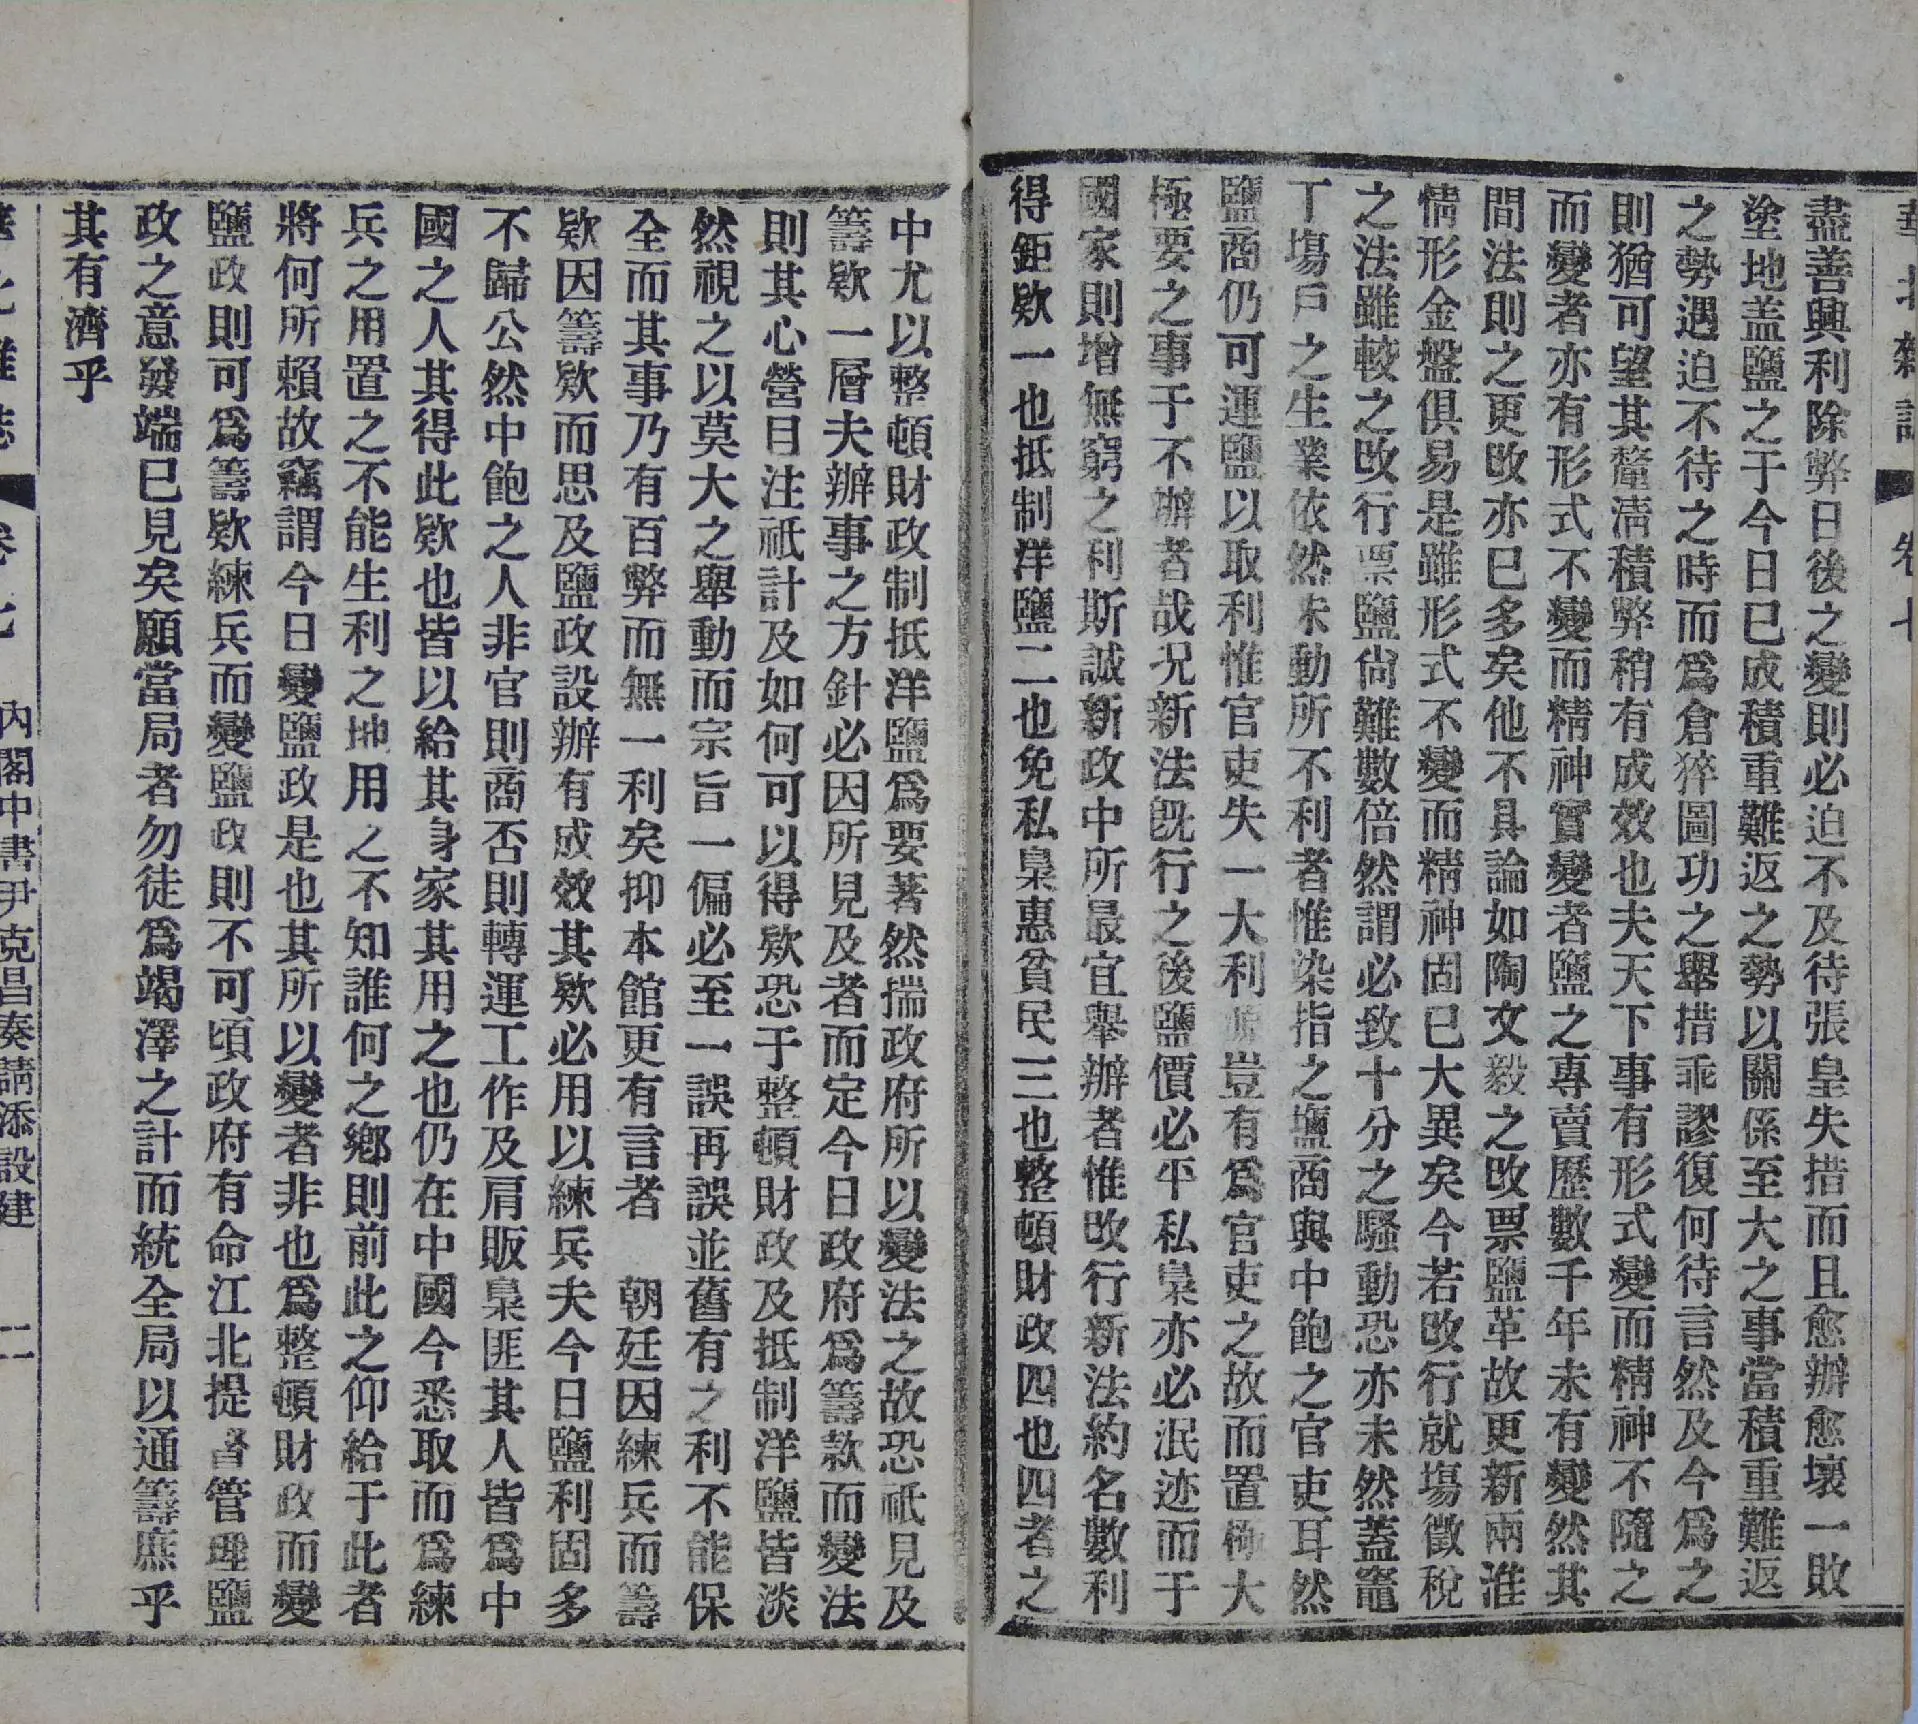 華北雜誌 卷七
盡善興利除弊日後之變則必迫不及待張皇失措而且愈辦愈壞一敗
塗地盖鹽之于今日已成積重難返之勢以關係至大之事當積重難返
之勢遇迫不待之時而爲倉猝圖功之舉措乖謬復何待言然及今爲之
則猶可望其釐淸積弊稍有成效也夫天下事有形式變而精神不隨之
而變者亦有形式不變而精神實變者鹽之專賣歷數千年未有變然其
間法則之更改亦已多矣他不具論如陶文毅之改票鹽革故更新兩淮
情形金盤俱易是雖形式不變而精神固已大異矣今若改行就塲徵稅
之法雖較之改行票鹽尙難數倍然謂必致十分之騷動恐亦未然蓋竈
丁塲戶之生業依然未動所不利者惟染指之鹽商與中飽之官吏耳然
鹽商仍可運鹽以取利惟官吏失一大利豈有爲官吏之故而置極大
極要之事于不辦者哉况新法旣行之後鹽價必平私梟亦必泯迹而于
國家則增無窮之利斯誠新政中所最宜舉辦者惟改行新法約名數利
得鉅欵一也抵制洋鹽二也免私梟惠貧民三也整頓財政四也四者之
中尤以整頓財政制抵洋鹽爲要著然揣政府所以變法之故恐祇見及
籌欵一層夫辦事之方針必因所見及者而定今日政府爲籌款而變法
則其心營目注祇計及如何可以得欵恐于整頓財政及抵制洋鹽皆淡
然視之以莫大之舉動而宗旨一偏必至一誤再誤並舊有之利不能保
全而其事乃有百弊而無一利矣抑本館更有言者　朝廷因練兵而籌
欵因籌欵而思及鹽政設辦有成效其欵必用以練兵夫今日鹽利固多
不歸公然中飽之人非官則商否則轉運工作及肩販梟匪其人皆爲中
國之人其得此欵也皆以給其身家其用之也仍在中國今悉取而爲練
兵之用置之不能生利之地用之不知誰何之鄕則前此之仰給于此者
將何所賴故竊謂今日變鹽政是也其所以變者非也爲整頓財政而變
鹽政則可爲籌欵練兵而變鹽政則不可頃政府有命江北提督管理鹽
政之意發端已見矣願當局者勿徒爲竭澤之計而統全局以通籌庶乎
其有濟乎
華北雜誌 卷七 內閣中書尹克昌奏請添設建 二